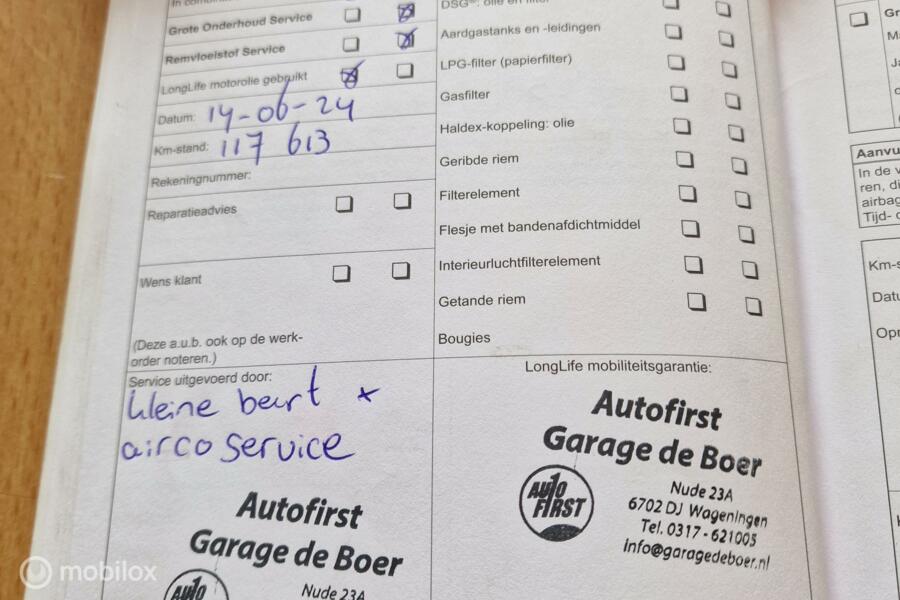 Grote Onderhoud Service
Remvloeistof Service
LongLife motorolie gebruikt
Datum: 14-06-24
Km-stand: 117 613
Rekeningnummer:
Reparatieadvies
Wens klant
(Deze a.u.b. ook op de werk-
order noteren.)
Service uitgevoerd door:
kleine beurt +
airco service
Autofirst
Garage de Boer
AUTO
Nude 23A
DSG®: olie en filter
Aardgastanks en -leidingen
LPG-filter (papierfilter)
Gasfilter
Haldex-koppeling: olie
Geribde riem
Filterelement
Flesje met bandenafdichtmiddel
Interieurluchtfilterelement
Getande riem
Bougies
LongLife mobiliteitsgarantie:
Autofirst
Garage de Boer
AUTO
FIRST
Nude 23A
6702 DJ Wageningen
Tel. 0317 - 621005
info@garagedeboer.nl
Gr
Aanvu
In de v
ren, di
airbag
Tijd- o
Km-s
Datu
Opr
mobilox